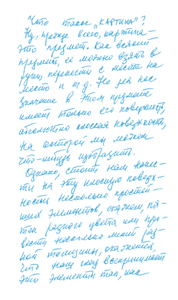 Что такое „картина"?
Ну, прежде всего, картина —
это предмет. Как всякий
предмет, её можно взять в
руки, перенести с места на
место и т.д. Но раз на-
значение в этом предмете
имеет только его поверхность,
абсолютно плоская поверхность,
на которой мы можем
что-нибудь изобразить.
Однако, стоит нам нане-
сти на эту плоскую поверх-
ность несколько простей-
ших элементов, скажем, пя-
тна разного цвета или про-
вести несколько линий раз-
ной толщины, окажется,
что наш глаз воспринимает
эти элементы так, как